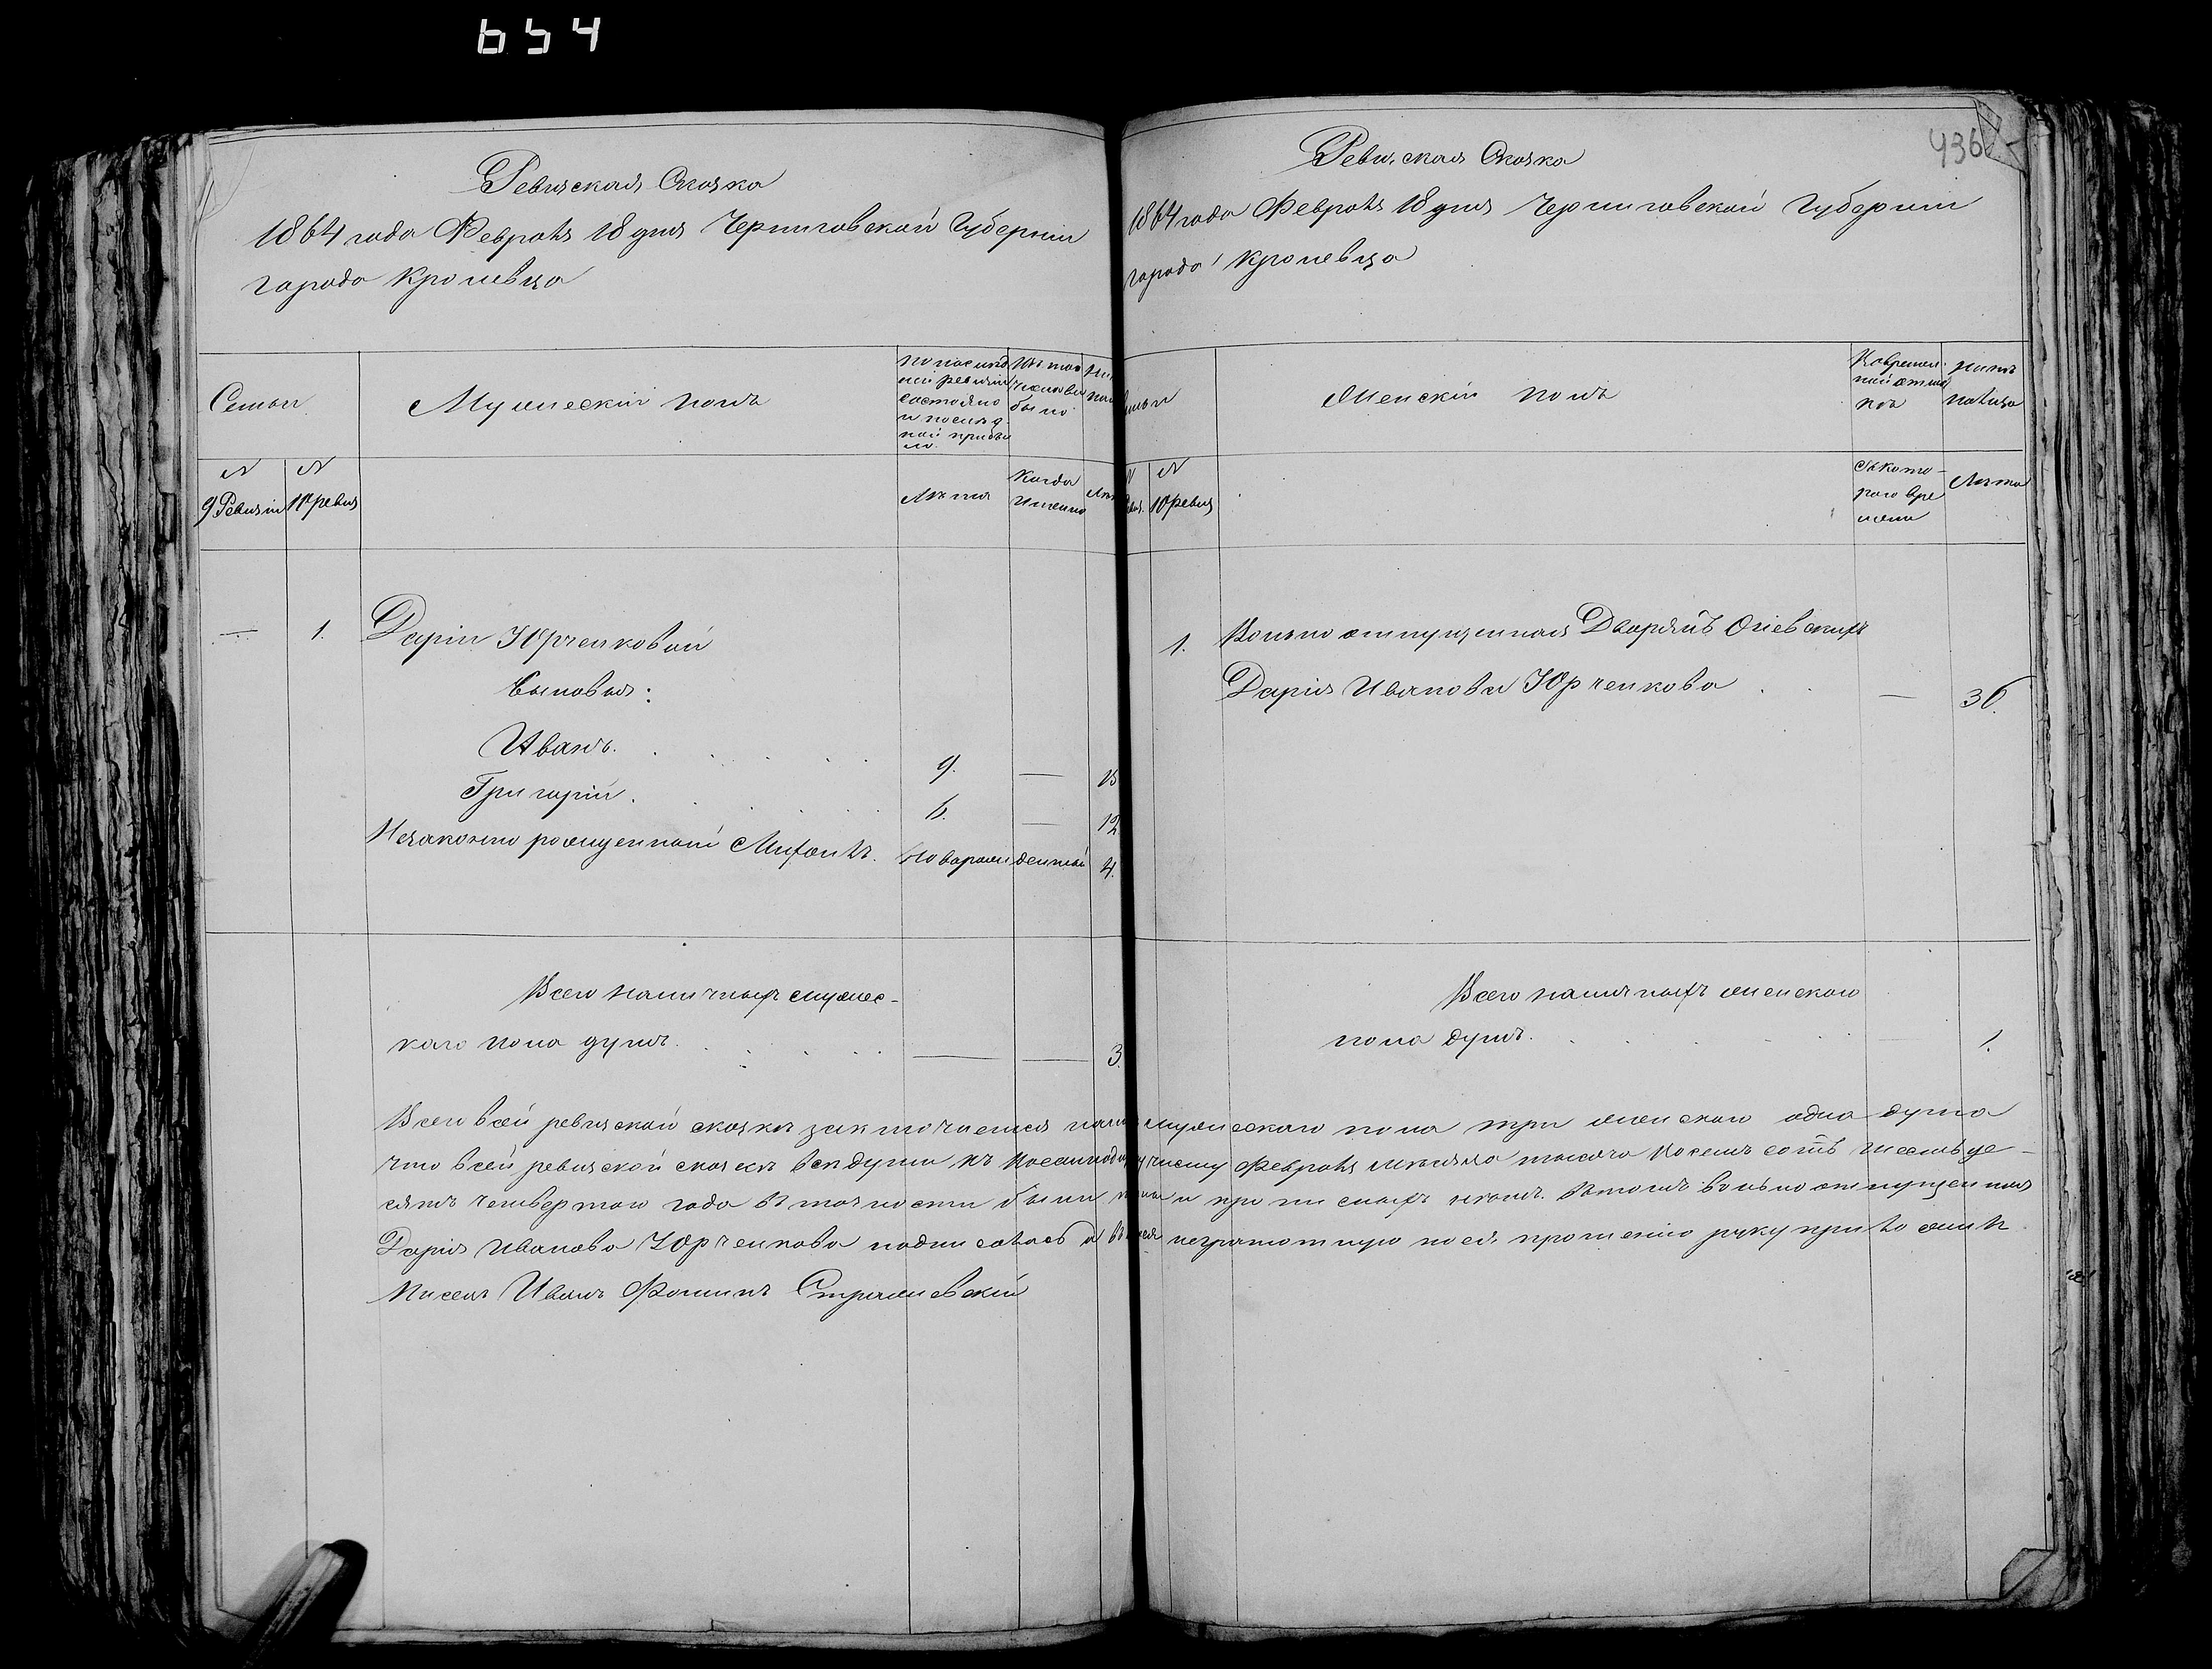 654
Ревизская Сказка
1864 года Февраля 18 дня Черниговской Губерніи
города Кролевца
Семьи
Мужескій полъ
По послѣд
ней ревизіи
состояло
и послѣ д
ной прибы
ло.
Изъ того
числа вы
было
№
9 Ревизіи
№
10 ревиз
Лѣта
Когда
Именно
Лѣт
— 1. Даріи Юрченковой
Сыновья:
Иванъ. 9. — 15
Григорій. 6. — 12
Незаконно рожденный Мифодій. Новорожденный 4.
Всего наличныхъ мужес-
каго пола душъ. — — 3.
436
Ревизская Сказка
1864 года Февраля 18 дня Черниговской Губерніи
города Кролевца
Женскій полъ
Во временной отлуч
№
10 ревиз
Съ кото-
раго вре
мени
Лѣта
1. Вольноотпущенная Дворянъ Огіевскихъ
Дарія Иванова Юрченкова — 36.
Всего наличныхъ женскаго
пола душъ. 1.
Всего в сей ревизской сказкѣ заключается мужескаго пола три женскаго одна душа
что в сей ревизской сказкѣ всѣ души къ числу Февраля мѣсяца тысяча восемь сотъ шестьде-
сятъ четвертаго года въ точности были и прописныхъ нѣтъ. Вътомъ вольноотпущенная
Дарія Иванова Юрченкова подписалась а неграмотную по ея прошенію руку приложилъ
Иванъ Фоминъ